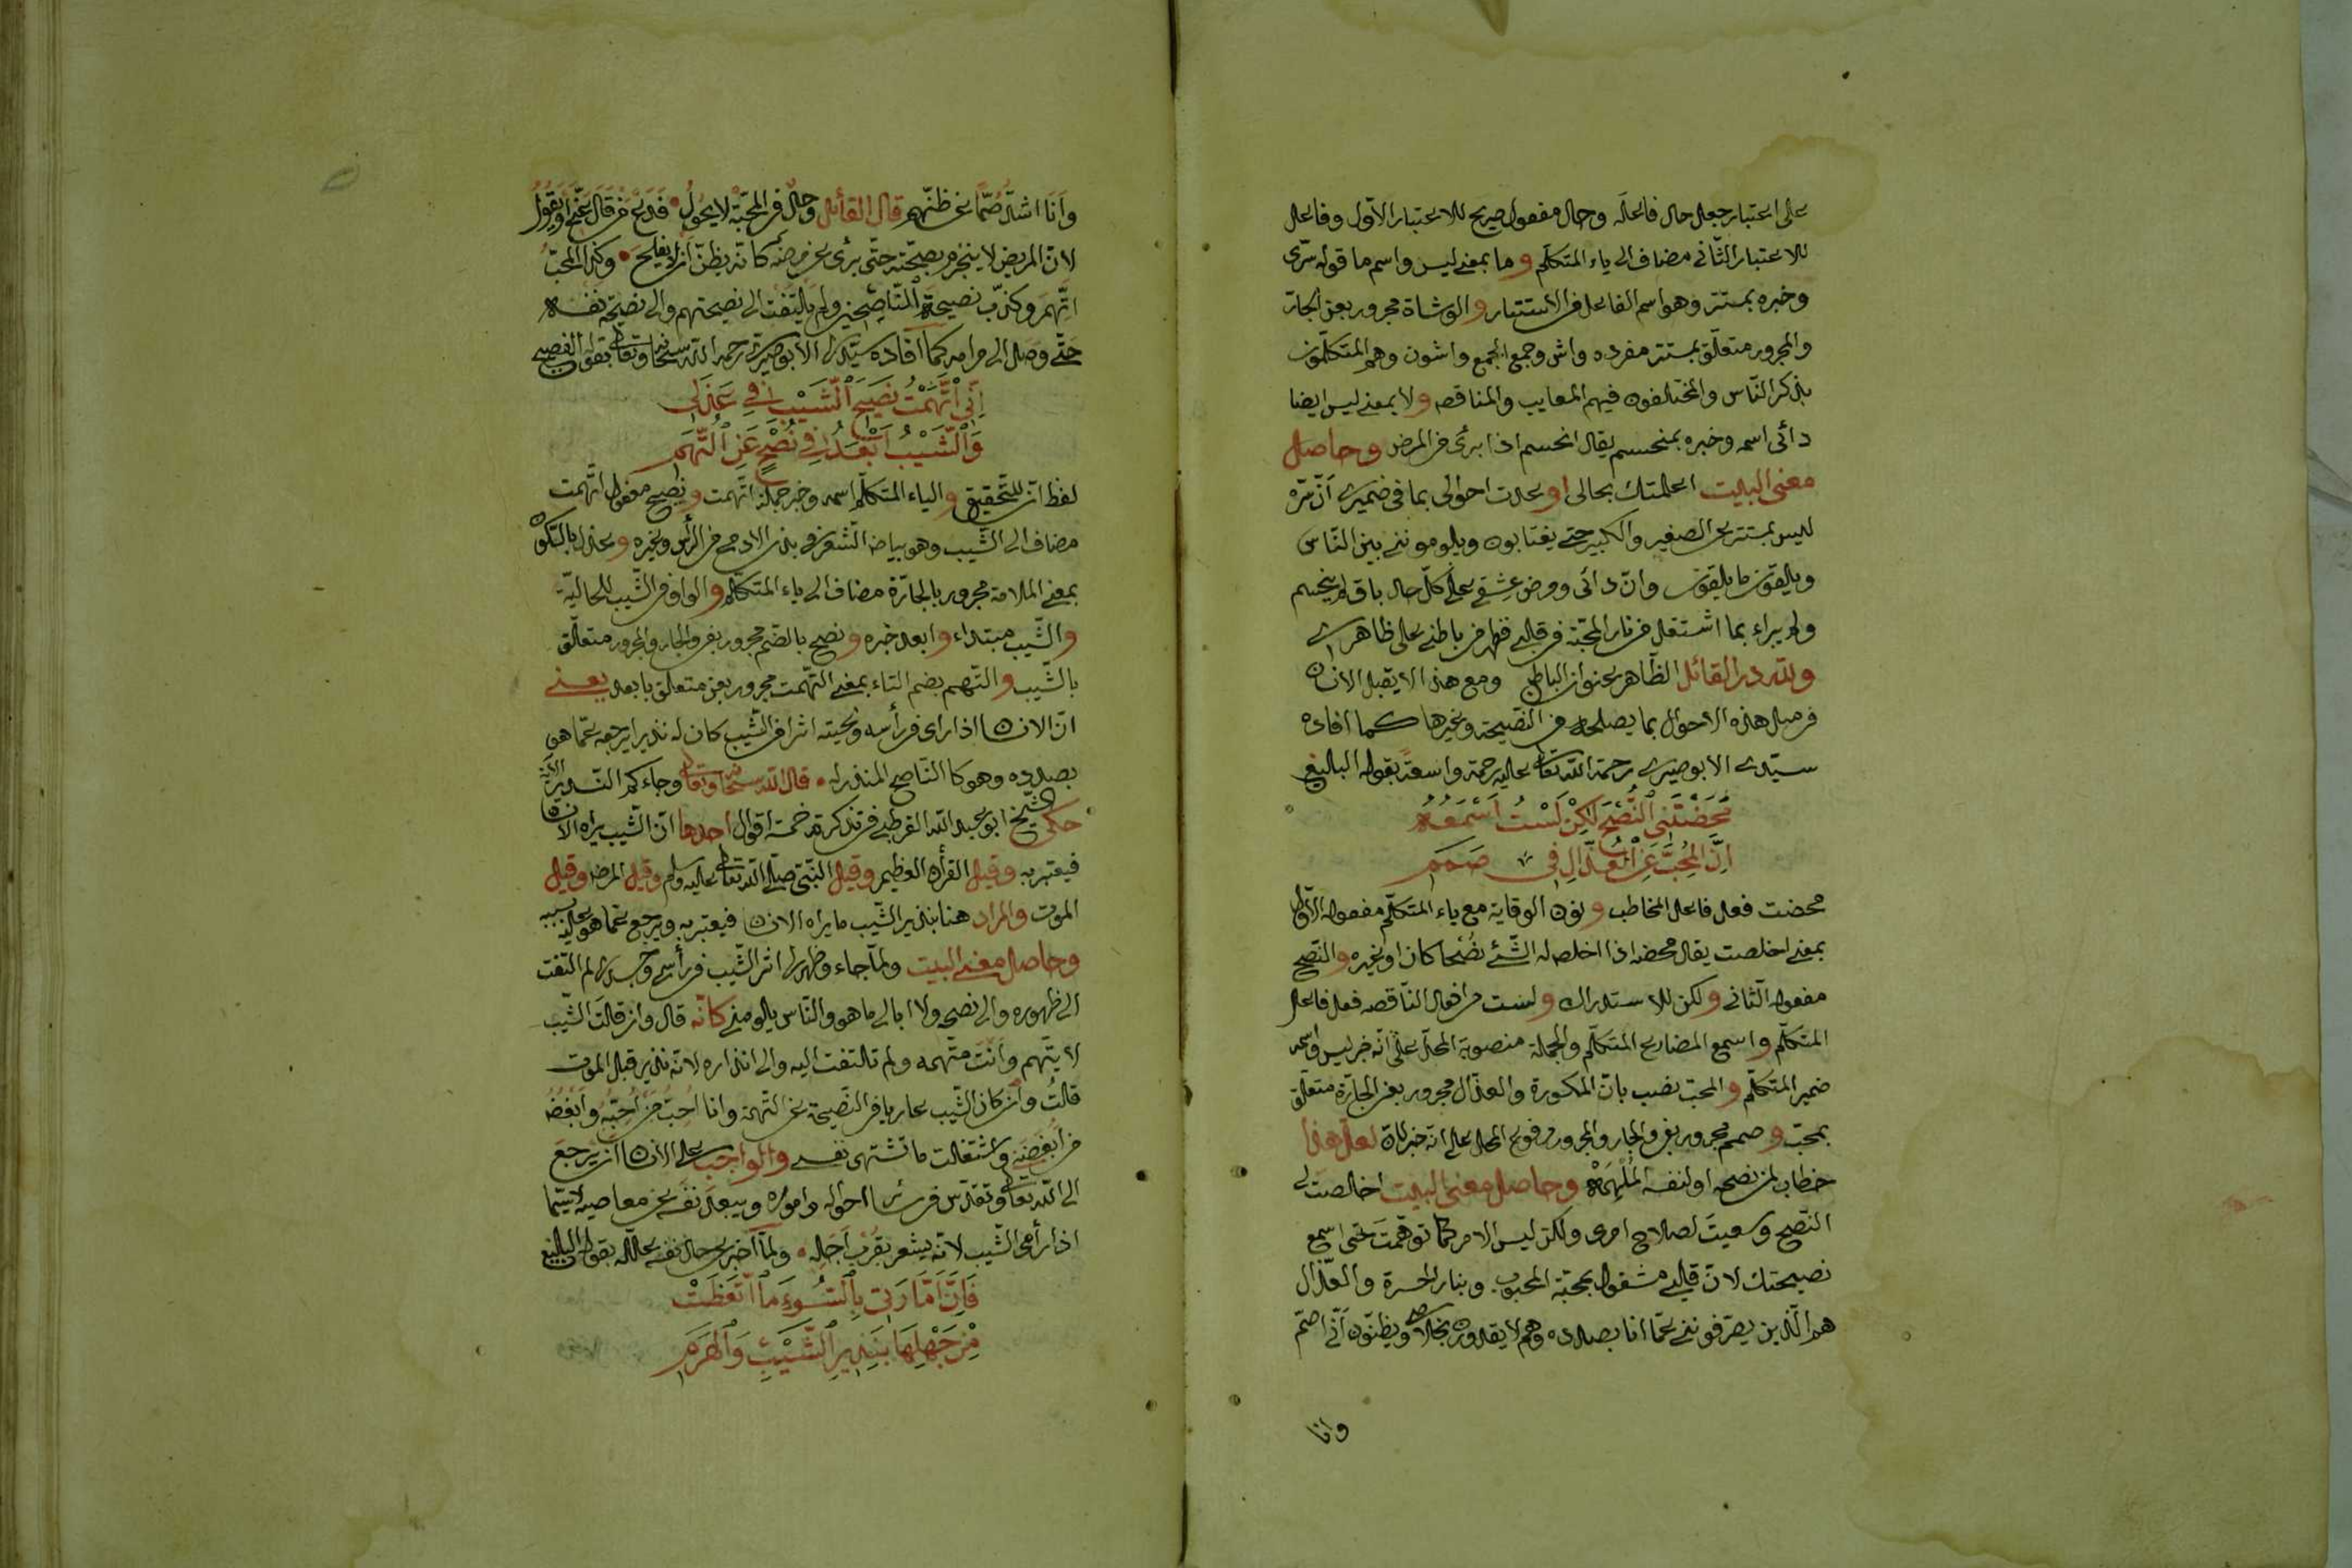 على اعتبار جعل حال فاعله وحال مفعول صريح للاعتبار الاوّل وفاعل
للاعتبار الثّانى مضاف الى ياء المتكلّم و ما بمعنى ليس واسم ما قوله سرّى
وخبره بمستتر وهو اسم الفاعل من الاستتار و الوشاة مجرور بعن الجارّ
والمجرور متعلّق بمستتر مفرده واش وجمع الجمع واشون وهم المتكلّمون
بذكر النّاس والمختلفون فيهم المعايب والمناقص و لا بمعنى ليس ايضا
دائى اسمه وخبره بمنحسم يقال انحسم اذا برئ من المرض وحاصل
معنى البيت اعلمتك بحالى او عدت احوالى بما فى ضميرى انّ سرّه
ليس بمستتر عن الصغير والكبير حتى يغتابون ويلوموننى بين النّاس
ويلقون ما يلقون وانّ دائى ومرض عشقى على كلّ حال باق لم ينحسم
ولم يبراء بما اشتعل من نار المحبّة فى قلبى فظهر من باطنى على ظاهرى
ولله در القائل الظّاهر عنوان الباطن ومع هذا لا يقبل الانسان
فى مثل هذه الاحوال بما يصلحه من النّصيحة وغيرها كما افاده
سيّدى الابوصيرى رحمة الله تعالى عليه رحمة واسعة بقوله البليغ
مَحَضْتَنِى النُّصْحَ لٰكِنْ لَسْتُ اَسْمَعُهُ
اِنَّ الْمُحِبَّ عَنِ الْعُذَّالِ فِى صَمَمِ
محضت فعل فاعل المخاطب و نون الوقاية مع ياء المتكلّم مفعوله الاوّل
بمعنى اخلصت يقال محضه اذا اخلص له الشّئ نصْحا كان او غيره و النّصح
مفعوله الثّانى و لكن للاستدراك و لست من افعال النّاقصه فعل فاعل
المتكلّم و اسمع المضارع المتكلّم والجملة منصوبة المحلّ على انّه خبر ليس واسمه
ضمير المتكلّم و المحبّ نصب بانّ المكسورة والعذّال مجرور بعن الجارّة متعلّق
بمحبّ و صمم مجرور بفى والجار والمجرور مرفوع المحل على انه خبر لانّ لعلّ هذا
خطاب لمن نصحه او لنفسه المُلْهِمَة وحاصل معنى البيت اخلصت لى
النّصح وسعيتَ لصلاح امرى ولكن ليس الامر كما توهّمت حتى اسمع
نصيحتك لانّ قلبى مشغول بمحبّة المحبوب وبنار الحسرة والعذّال
هم الّذين يصرفوننى عمّا انا بصدده وهم لا يقدرون بخلاصى ويظنّون انّى اصمّ
وانا
وَاَنَا اشدّ صُمّاً عن ظنّهم قال القائل وحال فى المحبّة لا يحُولُ فَدَعْ مَنْ قال عَنّى او يَقُولُ
لانّ المريض لا ينجزم بصحّته حتّى برئ عن مرضه كانّه يظنّ ان لا يفلح وكذا المحبّ
اتّهم وكذّب نصيحة النّاصحين ولم يلتفت الى نصيحتهم والى نصيحة نفسه
حتّى وصل الى مرامه كما افاده سيّدى الابوصيرى رحمه الله سبحانه وتعالى بقوله الفصيح
اِنِّى اتَّهَمْتُ نَصِيحَ الشَّيْبِ فِى عَذَلِى
وَالشَّيْبُ اَبْعَدُ فِى نُصْحٍ عَنِ التُّهَمِ
لفظ انّ للتّحقيق و الياء المتكلّم اسمه وخبر جملة اتّهمت و نصيح مفعول اتّهمت
مضاف الى الشّيب وهو بياض الشّعر فى بدن الادمى من الرأس وغيره و عذل بالسّكون
بمعنى الملامة مجرور بالجارّة مضاف الى ياء المتكلّم و الواو فى الشّيب للحاليّة
و الشّيب مبتداء و ابعد خبره و نصح بالضّم مجرور بفى والجار والمجرور متعلّق
بالشّيب و التّهم بضم التاء بمعنى التّهمت مجرور بعن متعلّق بابعد يعنى
انّ الانسان اذا راى فى رأسه ولحيته اثرا من الشّيب كان له نذيرا يرجعه عمّا هو
بصدده وهو كا النّاصح المنذر له قال الله سبحانه وتعالى وجاءكم النّذير الآية
حكى الشّيخ ابو عبد الله القرطبى فى تذكرته خمسة اقوال احدها انّ الشّيب يراه الانسان
فيعتبر به وقيل القرأن العظيم وقيل النّبىّ صلّى الله تعالى عليه وسلم وقيل المرض وقيل
الموت والمراد هنا بنذير الشّيب ما يراه الانسان فيعتبر به ويرجع عمّا هو عليه بسببه
وحاصل معنى البيت ولمّا جاء وظهر لى اثر الشّيب فى رأسى وجسدى لم التفت
الى ظهوره والى نصحه ولا ابالى ما هو والنّاس يلومنى كانّه قال وان قالت الشّيب
لا يتّهم وانت متّهمه ولم تلتفت اليه والى انذاره لانّه نذير قبل الموت
قالتُ وان كان الشّيب عاريا من النّصيحة عن التّهمة وانا اُحِبُّ مَنْ اُحِبّهُ وابْغُضُ
من اَبْغَضَنى واشتغلت ما تشتهى نفسى والواجب على الانسان ان يرجع
الى الله تعالى وتقدّس فى سائر احواله واموره ويبعد نفسه عن معاصيه لا سيّما
اذا رأى الشّيب لانّه يشعر بقرب اَجَلِه ولمّا اخبر عن حال نفسه علّله بقوله البليغ
فَاِنَّ اَمَّارَتِى بِالسُّوءِ مَا اتَّعَظَتْ
مِنْ جَهْلِهَا بِنَذِيرِ الشَّيْبِ وَالْهَرَمِ